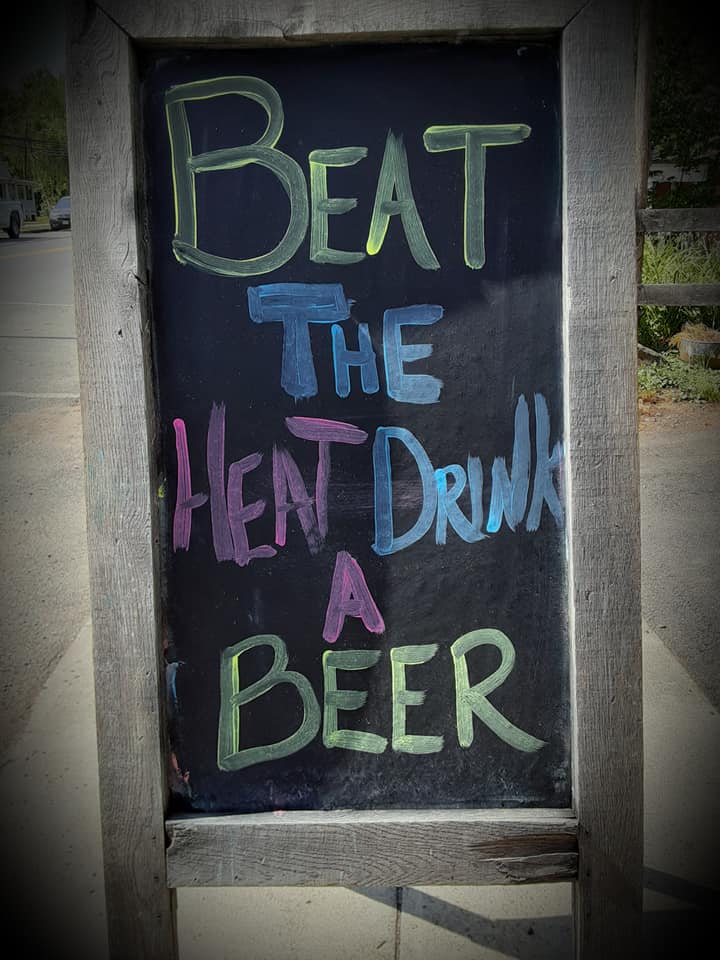 BEAT
THE
HEAT DRINK
A
BEER